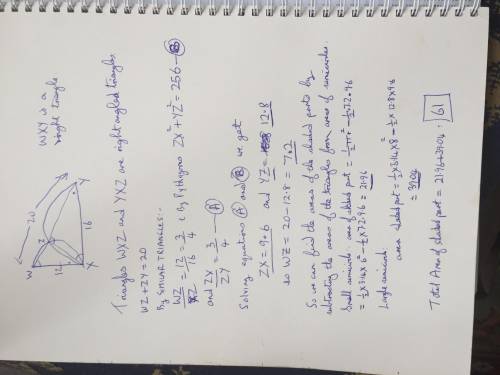 WXY is a
right triangle
20
W
Z
12
X
16
Y
Triangles WXZ and YXZ are right angled triangles.
WZ + ZY = 20
By SIMILAR TRIANGLES:-
WZ/XZ = 12/16 = 3/4 & by Pythagoras ZX² + YZ² = 256 - B
and ZX/ZY = 3/4 - A
Solving equations A and B we get
ZX = 9.6 and YZ = 12.8
so WZ = 20 - 12.8 = 7.2
So we can find the areas of the shaded parts by
subtracting the areas of the triangles from area of semicircles.
Small semicircle: area of shaded part = ½πr² - ½×7.2×9.6
= ½ × 3.14 × 6² - ½ × 7.2 × 9.6 = 21.96
Large semicircle:
area shaded part = ½ × 3.14 × 8² - ½ × 12.8 × 9.6
= 39.04
Total Area of shaded part = 21.96 + 39.04 = 61